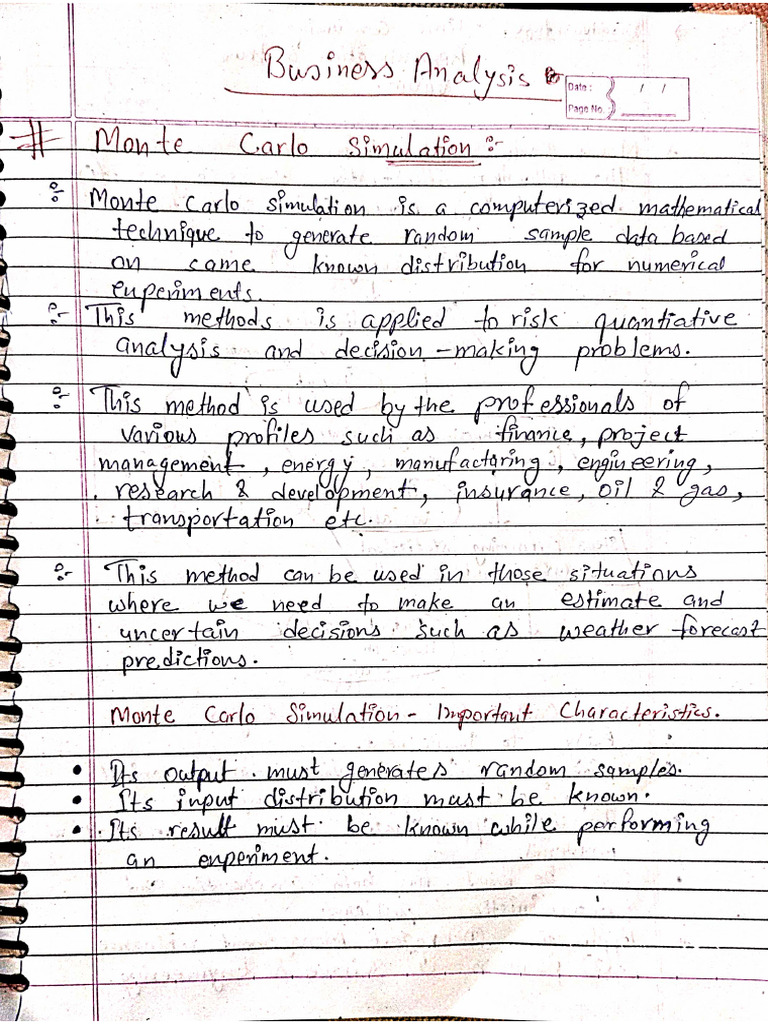 Business Analysis
Date : / /
Page No.
# Monte Carlo Simulation :-
Monte Carlo simulation is a computerized mathematical
technique to generate random sample data based
on came known distribution for numerical
experiments.
This methods is applied to risk quantiative
analysis and decision-making problems.
This method is used by the professionals of
various profiles such as finance, project
management, energy, manufactoring, engineering,
research & development, insurance, oil & gas,
transportation etc.
This method can be used in those situations
where we need to make an estimate and
uncertain decisions such as weather forecast
predictions.
Monte Carlo Simulation - Important Characteristics.
• Its output must generates random samples.
• Its input distribution must be known.
• Its result must be known while performing
an experiment.